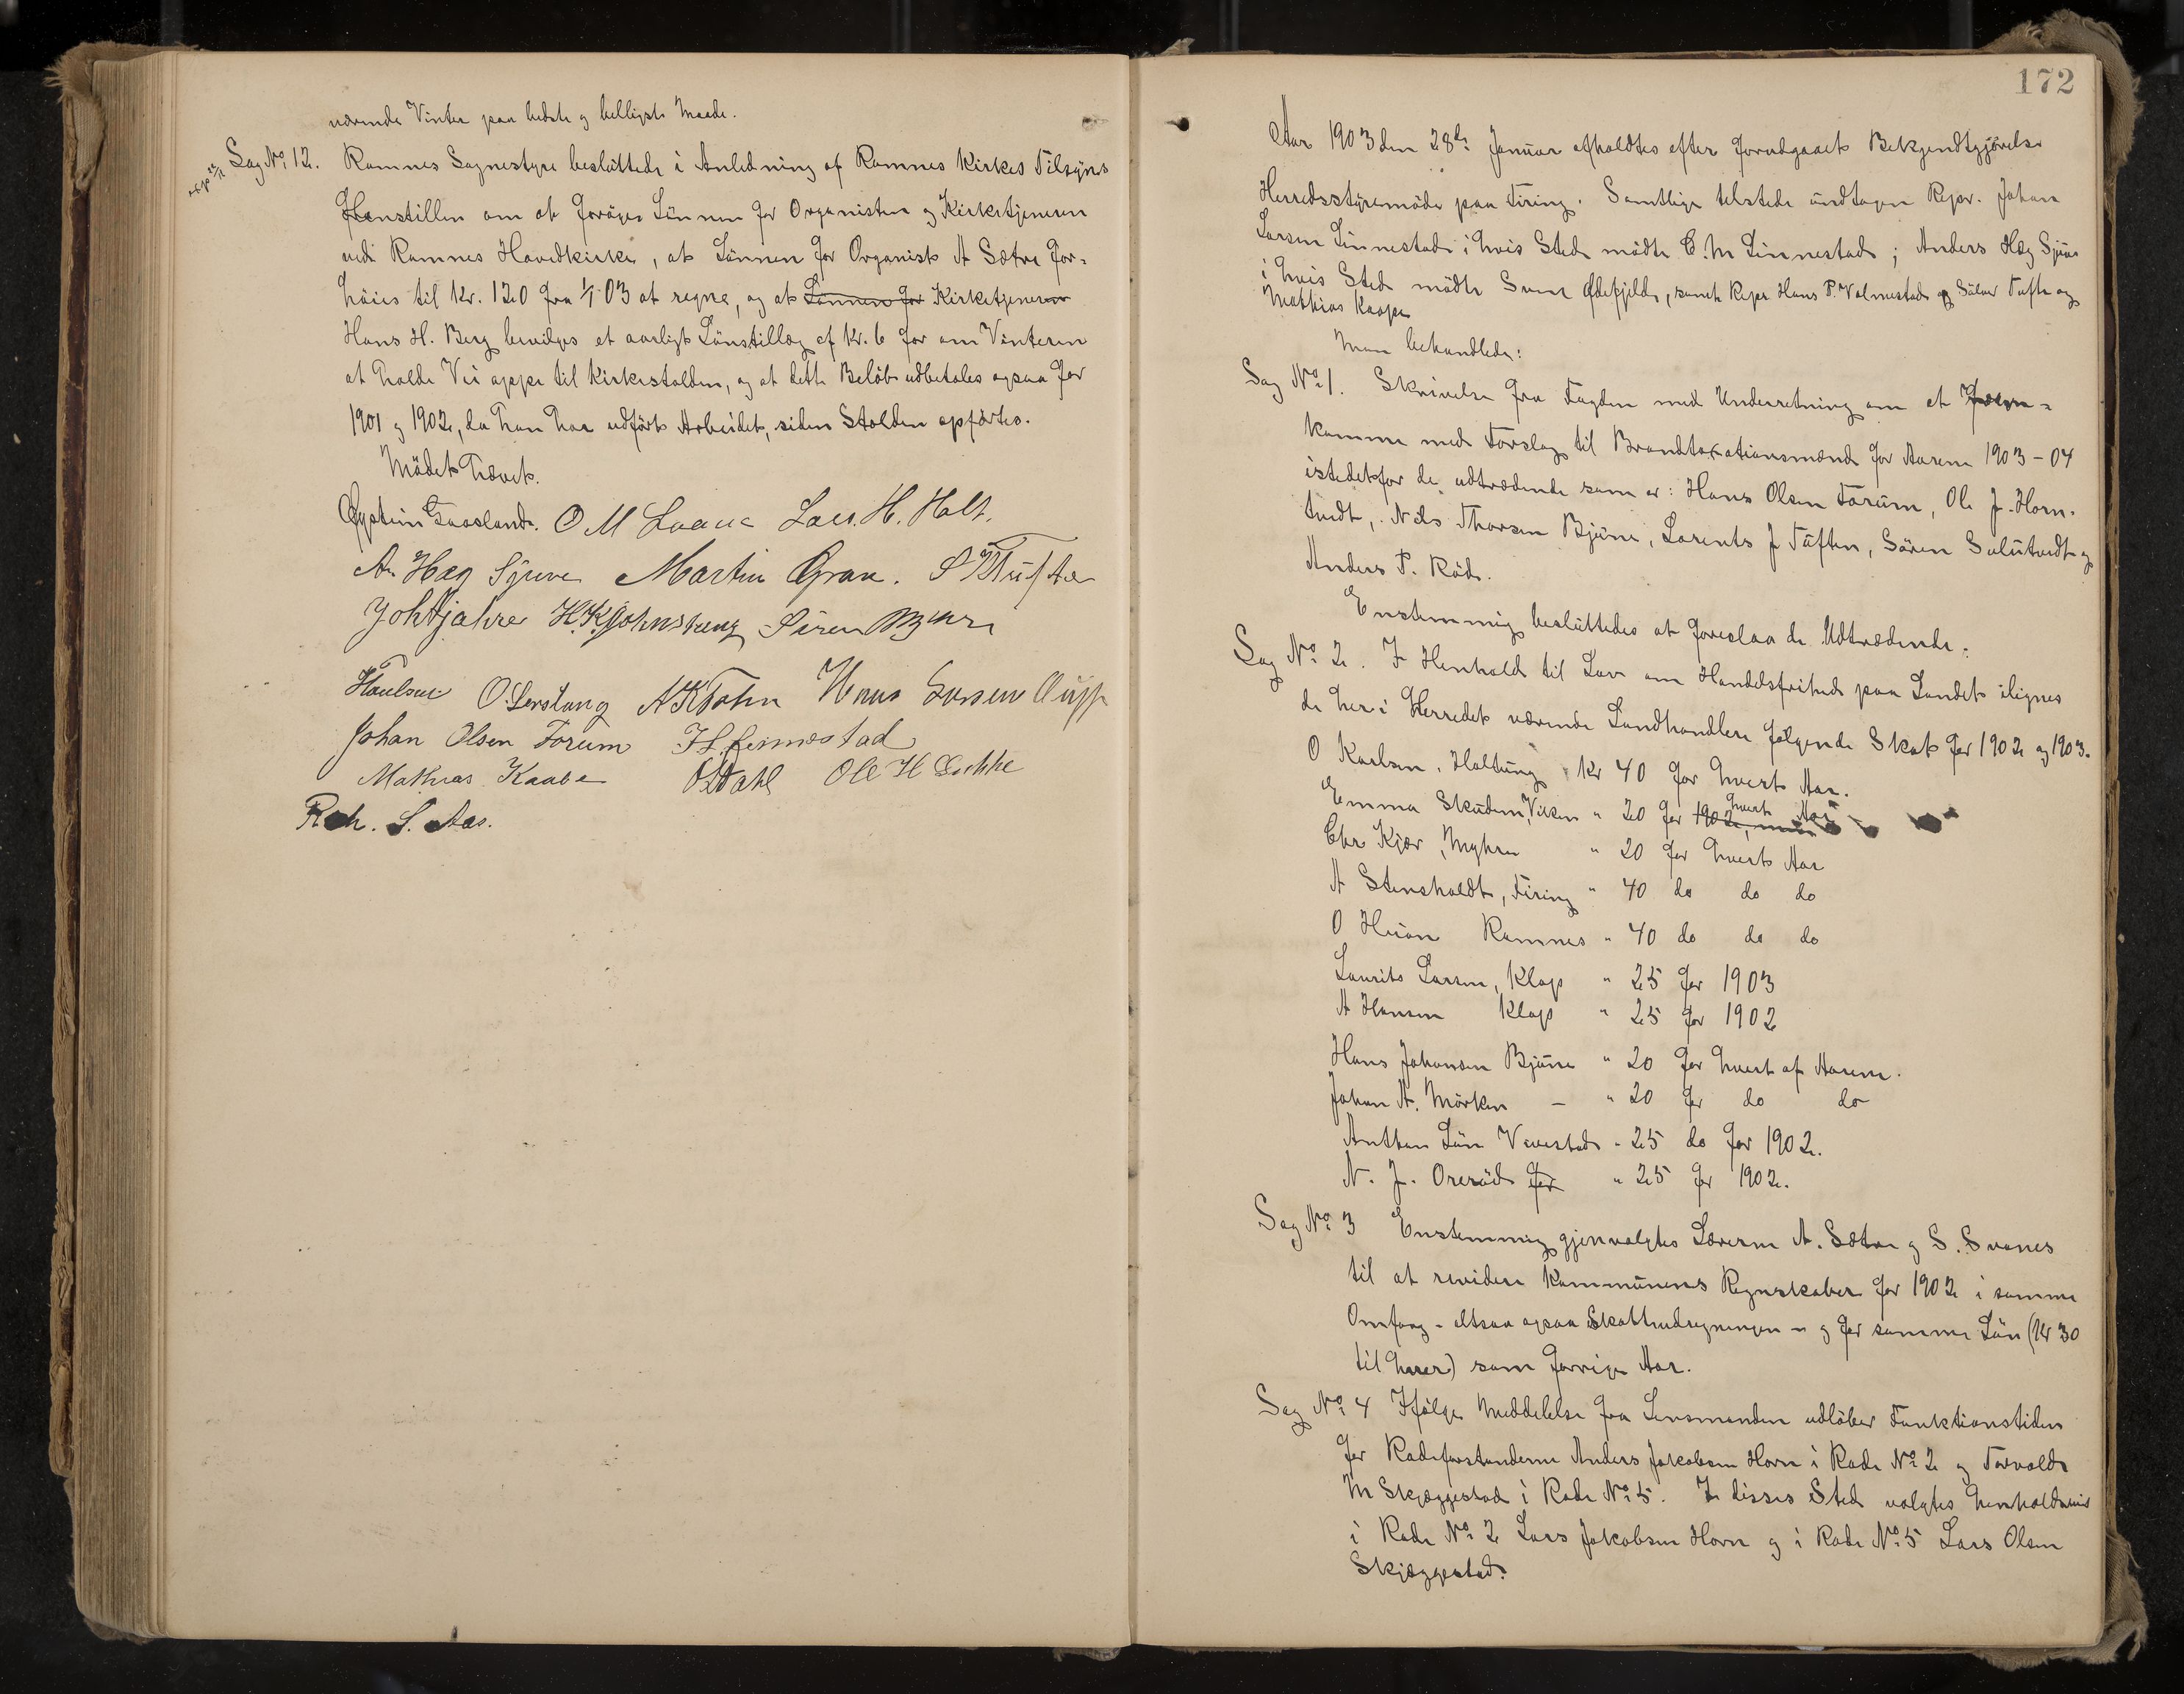 værende Vinter paa bedste og billigste Maade.
Sag No. 12. Ramnes Sognestyre besluttede i Anledning af Ramnes Kirkes Tilsyns
Henstillen om at forøges Lönnen for Organisten og Kirketjeneren
ved Ramnes Hovedkirke, at Lönnen for Organist A Sætre for-
höies til Kr. 120 fra 1/1 03 at regne, og at Lönnen for Kirketjeneren
Hans H. Berg bevilges et aarligt Lönstillæg af Kr. 6 for om Vinteren
at holde Vei oppe til Kirkestalden, og at dette Belöb udbetales ogsaa for
1901 og 1902, da han har udfört Arbeidet, siden Stalden opförtes.
Mödet hævet.
Øystein Gaasland. O M Laane Lars. H. Holt.
A. Hæg Sjuve Martin Gran.
H.K. Johnskung Sören
O. Serstang Hans Larsen
Johan Olsen Forum H. Linnestad
Mathias Kaabe O Dahl Ole H
Rich. S. Aas.
172
Aar 1903 den 28de Januar afholdtes efter forudgaaet Bekjendtgjörelse
Herredsstyremöde paa Firing. Samtlige tilstede undtagen Repr. Johan
Larsen Linnestad i hvis Sted mödte C. M Linnestad; Anders Hæg Sjuve
i hvis Sted mödte Svend Ødefjeld, samt Repr Hans P. Valmestad og Sölver Tufte og
Mathias Kaape
Man behandlede:
Sag No. 1. Skrivelse fra Fogden med Underretning om at
komme med Forslag til Brandtaxationsmænd for Aarene 1903-04
istedetfor de udtrædende som er: Hans Olsen Forum, Ole J. Horn-
tvedt, Nils Thorsen Bjune, Lorents J Tuften, Sören Solutvedt og
Anders P. Röd.
Enstemmig besluttedes at foreslaa de Udtrædende.
Sag No. 2. I Henhold til Lov om Handelsfrihed paa Landet ilignes
de her i Herredet værende Landhandlere fölgende Skat for 1902 og 1903.
O Karlsen, Holtung Kr 40 for hvert Aar.
Emma Skuden, Viken " 20 for hvert Aar
Chr Kjær, Myhre " 20 for hvert Aar
A Stensholdt, Firing " 40 do do do
O Ramnes " 40 do do do
Laurits Larsen, Klop " 25 for 1903
A Hansen Klop " 25 for 1902
Hans Johansen Bjune " 20 for hvert af Aarene.
Johan A. Mörken — " 20 for do do
Anthon Lön Vivestad " 25 do for 1902.
N. J. Oreröd for " 25 for 1902.
Sag No. 3 Enstemmig gjenvalgtes Lærerne A. Sætre og S. Svanes
til at revidere Kommunens Regnskaber for 1902 i samme
Omfang - altsaa ogsaa Skatteudregningen - og for samme Lön (Kr 30
til hver) som forrige Aar.
Sag No. 4 Ifölge Meddelelse fra Lensmanden udlöber Funktionstiden
for Rodeforstanderne Anders Jakobsen Horn i Rode No. 2 og Torvald
M Skjæggestad i Rode No. 5. I disses Sted valgtes henholdsvis
i Rode No. 2 Lars Jakobsen Horn og i Rode No. 5 Lars Olsen
Skjæggestad.